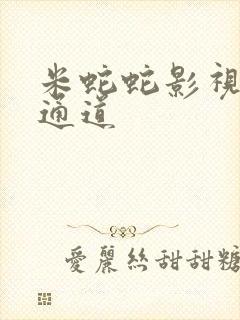 米蛇蛇影視
通道
愛麗絲甜甜糖